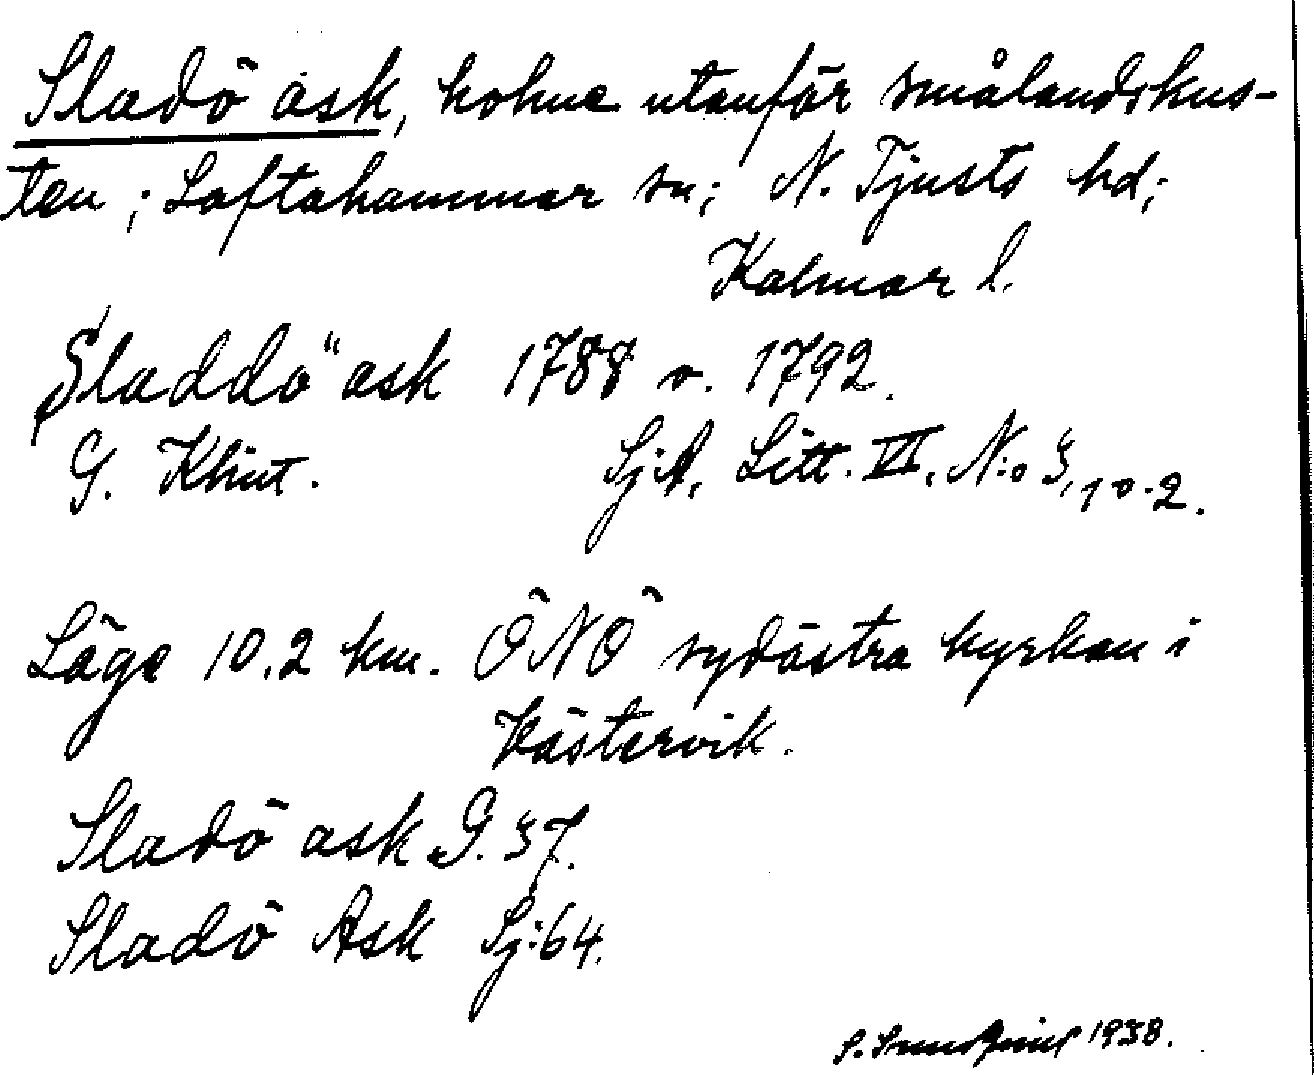 Sladö ask, holme utanför smålandskus-
ten; Loftahammar sn; N. Tjusts hd;
Kalmar l.
Sladdö ask 1788 o. 1792.
G. Klint. Sj.A, Litt. VI, N:o 3, 1 o. 2.
Läge 10,2 km. ÖNÖ sydöstra kyrkan i
Västervik.
Sladö ask G. 37.
Sladö Ask Sj:64.
S. 1938.